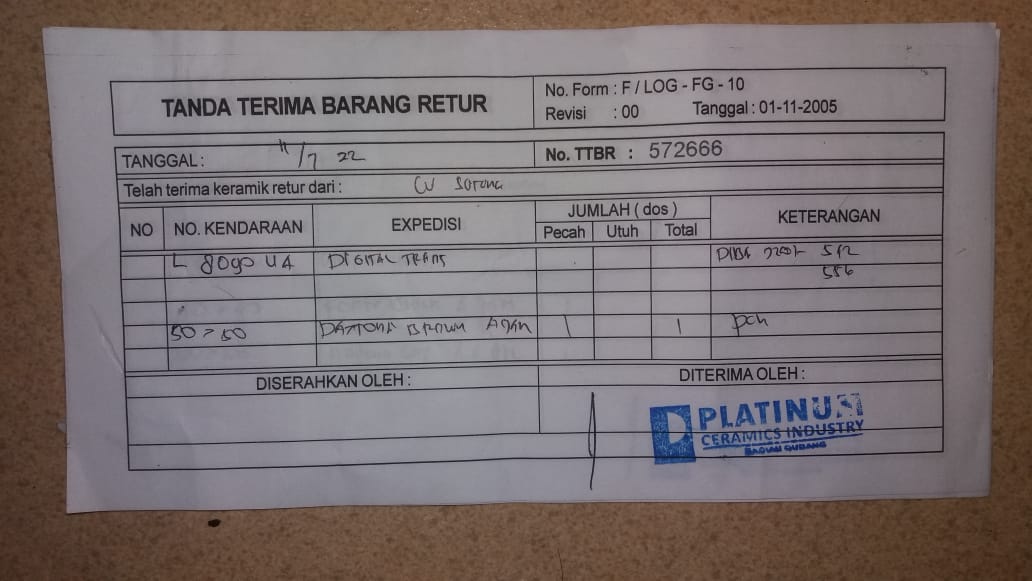 TANDA TERIMA BARANG RETUR
No. Form : F / LOG - FG - 10
Revisi : 00 Tanggal : 01-11-2005
TANGGAL : 11/7 22
No. TTBR : 572666
Telah terima keramik retur dari : CV
NO NO. KENDARAAN EXPEDISI JUMLAH ( dos ) KETERANGAN
Pecah Utuh Total
L 8090 UA DIGITAL TRANS 512
556
50 x 50 DAYTONA BROWN 1 1 pch
DISERAHKAN OLEH : DITERIMA OLEH :
PLATINUM
CERAMICS INDUSTRY
BAGIAN GUDANG